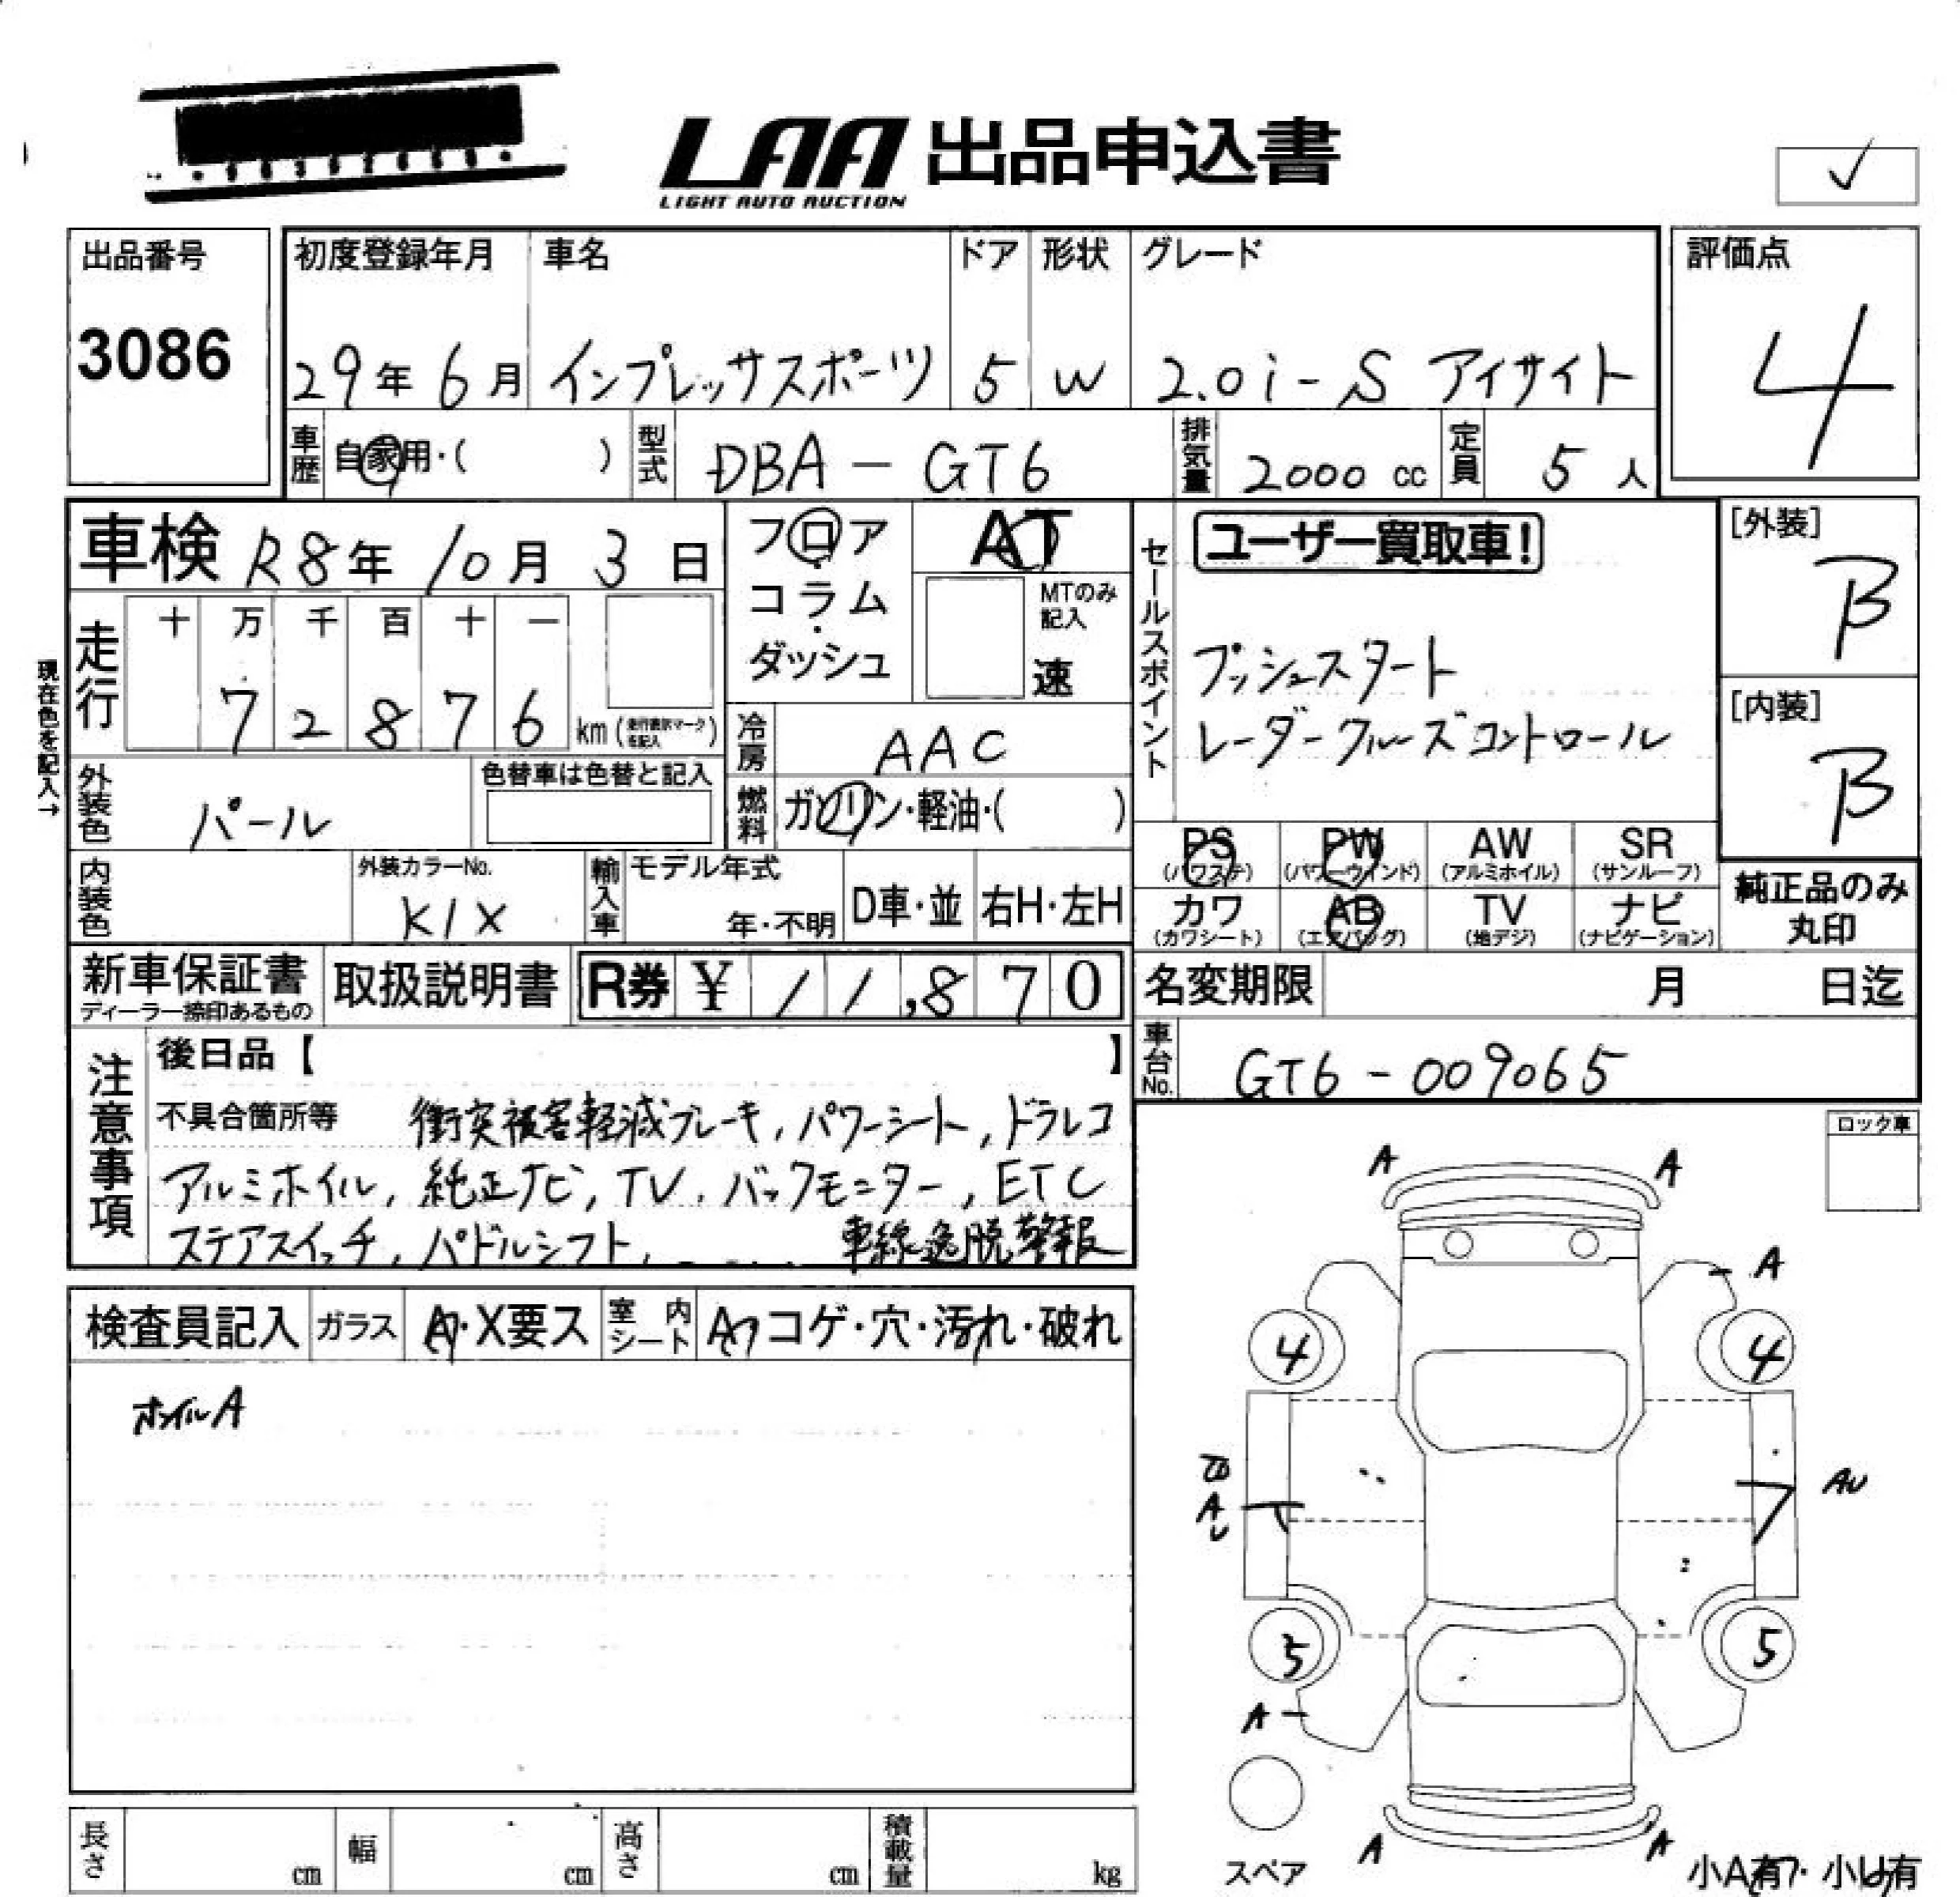 LAA 出品申込書
LIGHT AUTO AUCTION
✓
出品番号
3086
初度登録年月 車名 ドア 形状 グレード
29年 6月 インプレッサスポーツ 5 W 2.0i-S アイサイト
評価点
4
車歴 自家用・( ) 型式 DBA-GT6 排気量 2000 cc 定員 5 人
車検 R8年 10月 3日
フロア
コラム
ダッシュ
AT
MTのみ記入
速
セールスポイント
ユーザー買取車!
プッシュスタート
レーダークルーズコントロール
[外装]
B
[内装]
B
現在色を記入→
走行 十 万 千 百 十 一
7 2 8 7 6 km (走行表示マークを記入)
冷房 AAC
外装色 パール
色替車は色替と記入
燃料 ガソリン・軽油・( )
PS (パワステ) PW (パワーウインド) AW (アルミホイル) SR (サンルーフ)
カワ (カワシート) AB (エアバッグ) TV (地デジ) ナビ (ナビゲーション)
純正品のみ丸印
内装色
外装カラーNo.
K1X
輸入車 モデル年式
年・不明 D車・並 右H・左H
新車保証書
ディーラー捺印あるもの
取扱説明書 R券 ¥ 11,870
名変期限 月 日迄
車台No. GT6-009065
注意事項
後日品【 】
不具合箇所等 衝突被害軽減ブレーキ, パワーシート, ドラレコ
アルミホイル, 純正ナビ, TV, バックモニター, ETC
ステアスイッチ, パドルシフト, 車線逸脱警報
ロック車
検査員記入 ガラス A・X要ス 室内シート A コゲ・穴・汚れ・破れ
ホイルA
A A
A
4 4
A
U
AU
5 5
A
A A
スペア
小A有・小U有
長さ cm 幅 cm 高さ cm 積載量 kg